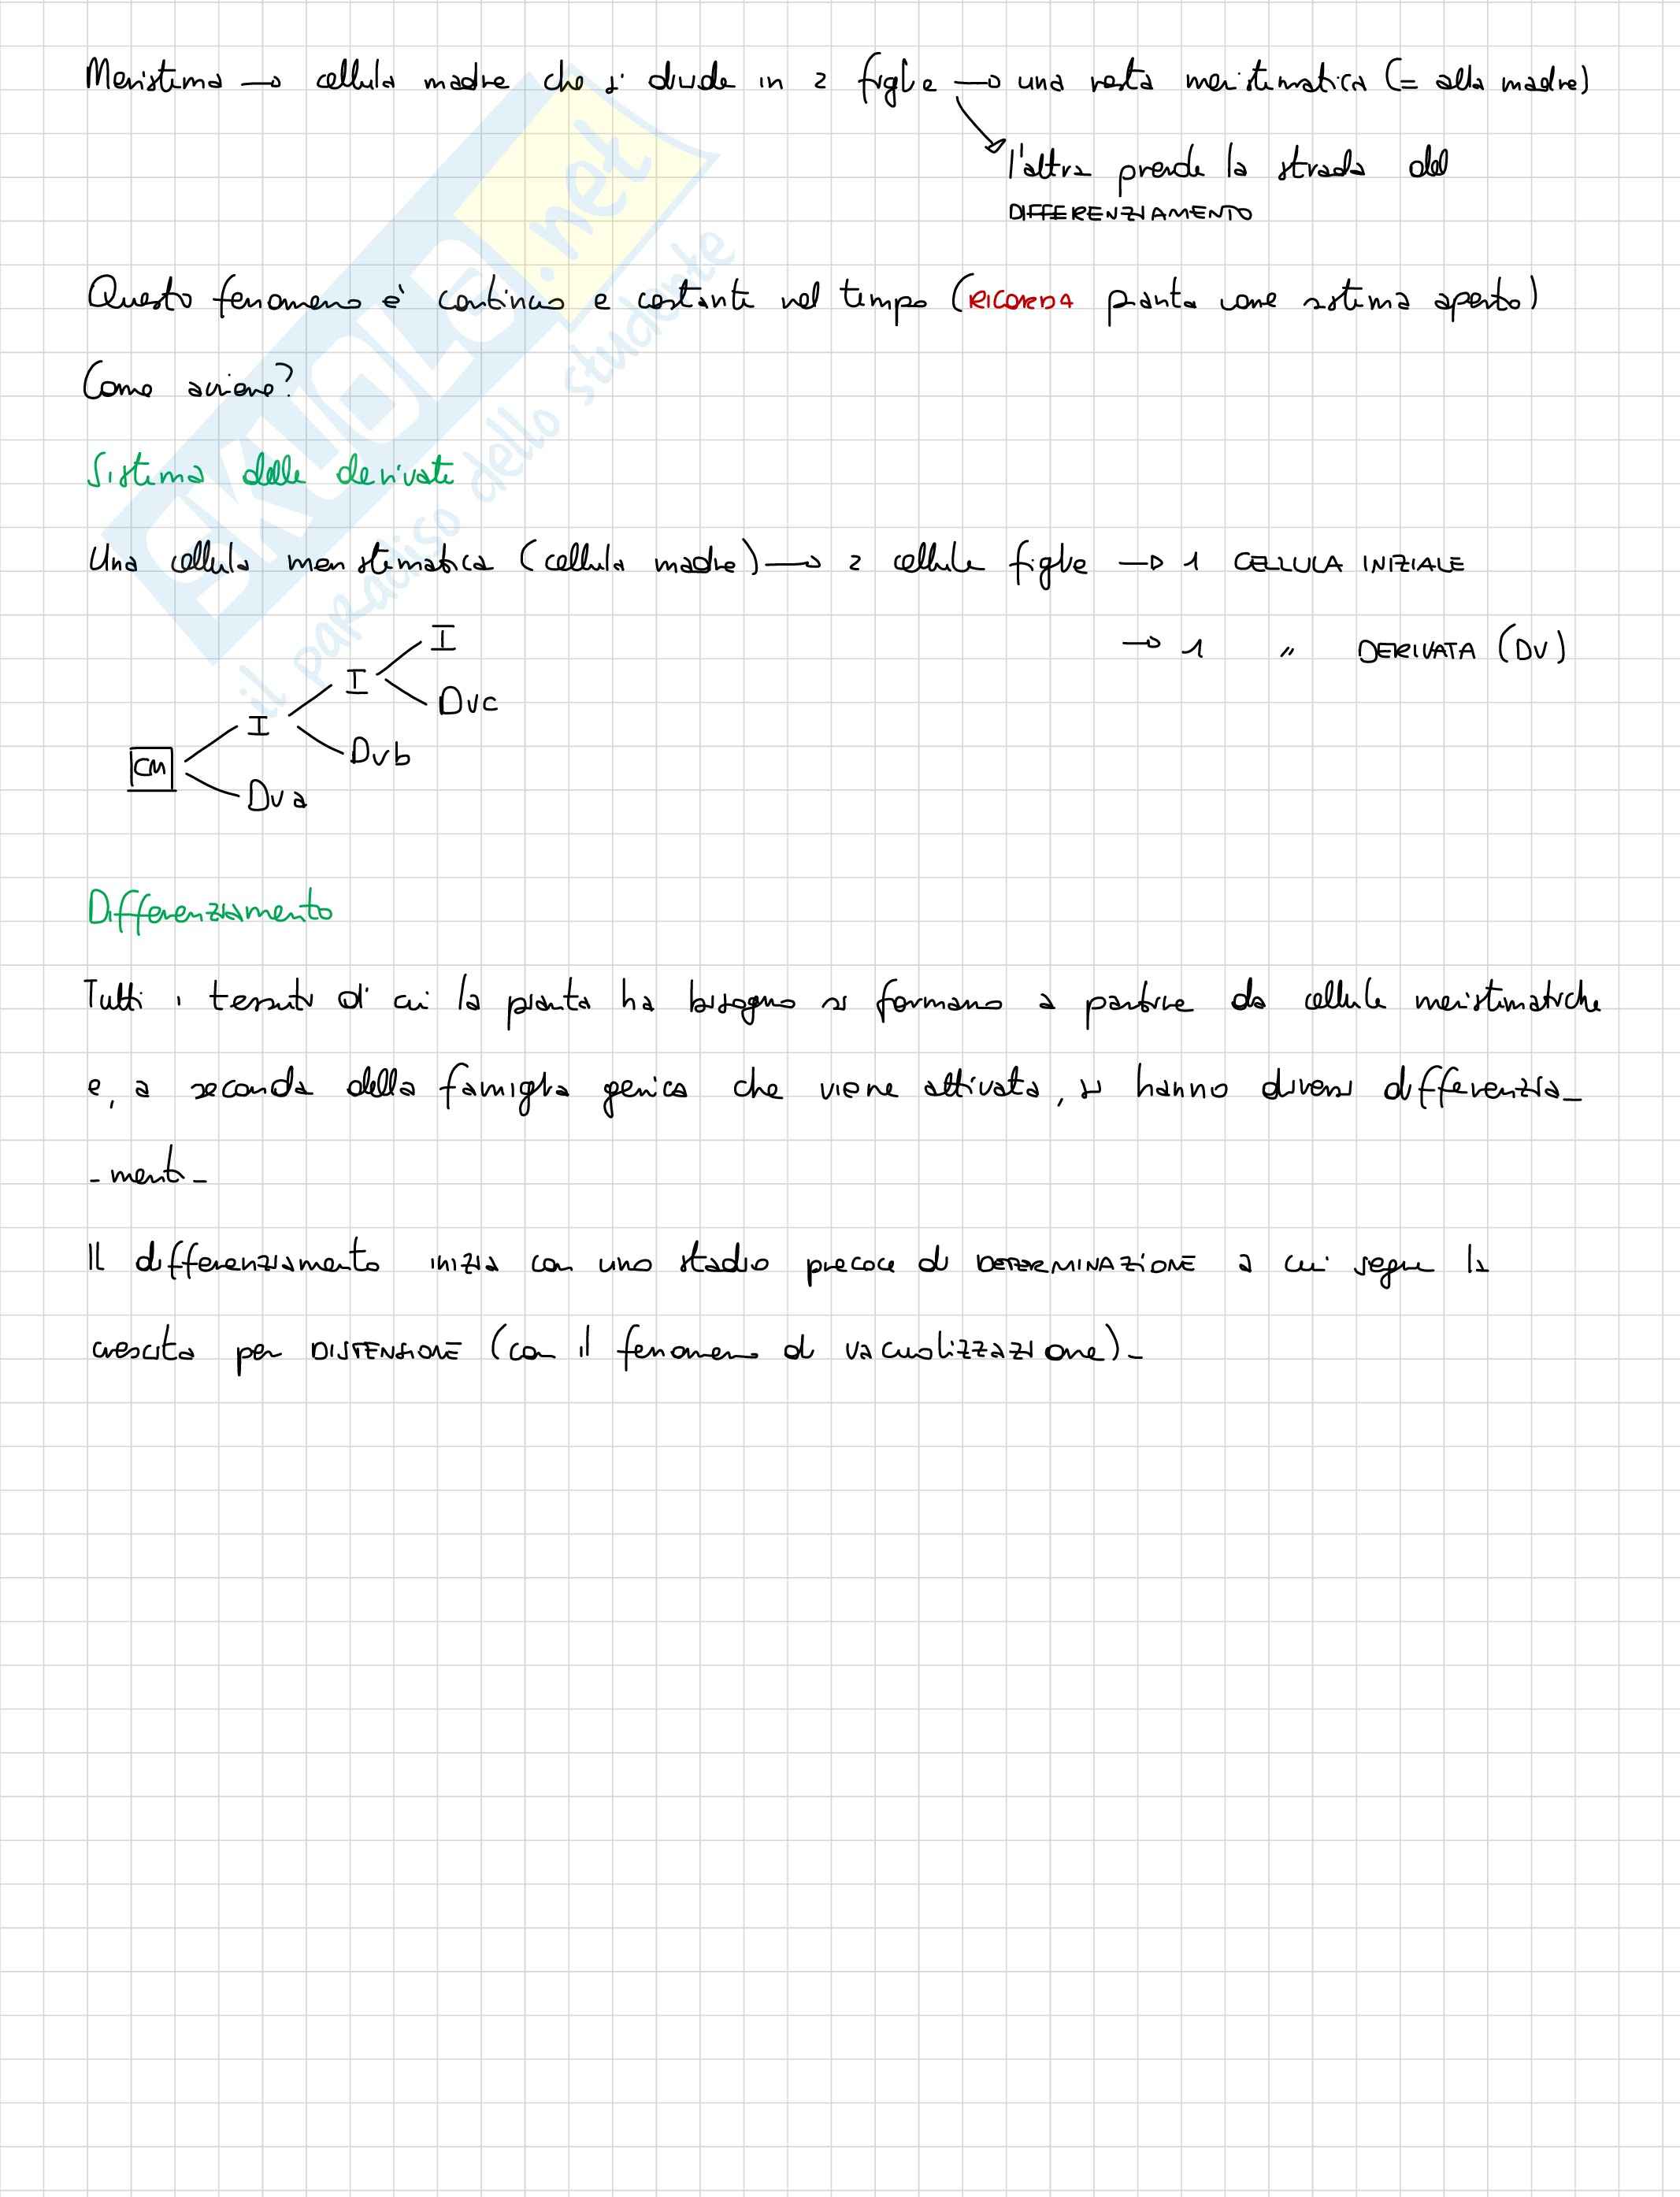 Meristema → cellula madre che si divide in 2 figlie → una resta meristematica (= alla madre)
l'altra prende la strada del
DIFFERENZIAMENTO
Questo fenomeno è continuo e costante nel tempo (RICORDA pianta come sistema aperto)
Come avviene?
Sistema delle derivate
Una cellula meristematica (cellula madre) → 2 cellule figlie → 1 CELLULA INIZIALE
→ 1 " DERIVATA (DV)
I
I
Dvc
I
Dvb
CM
Dva
Differenziamento
Tutti i tessuti di cui la pianta ha bisogno si formano a partire da cellule meristematiche
e, a seconda della famiglia genica che viene attivata, si hanno diversi differenzia-
-menti-
Il differenziamento inizia con uno stadio precoce di DETERMINAZIONE a cui segue la
crescita per DISTENSIONE (con il fenomeno di vacuolizzazione)-
SKUOLA.net
il paradiso dello studente